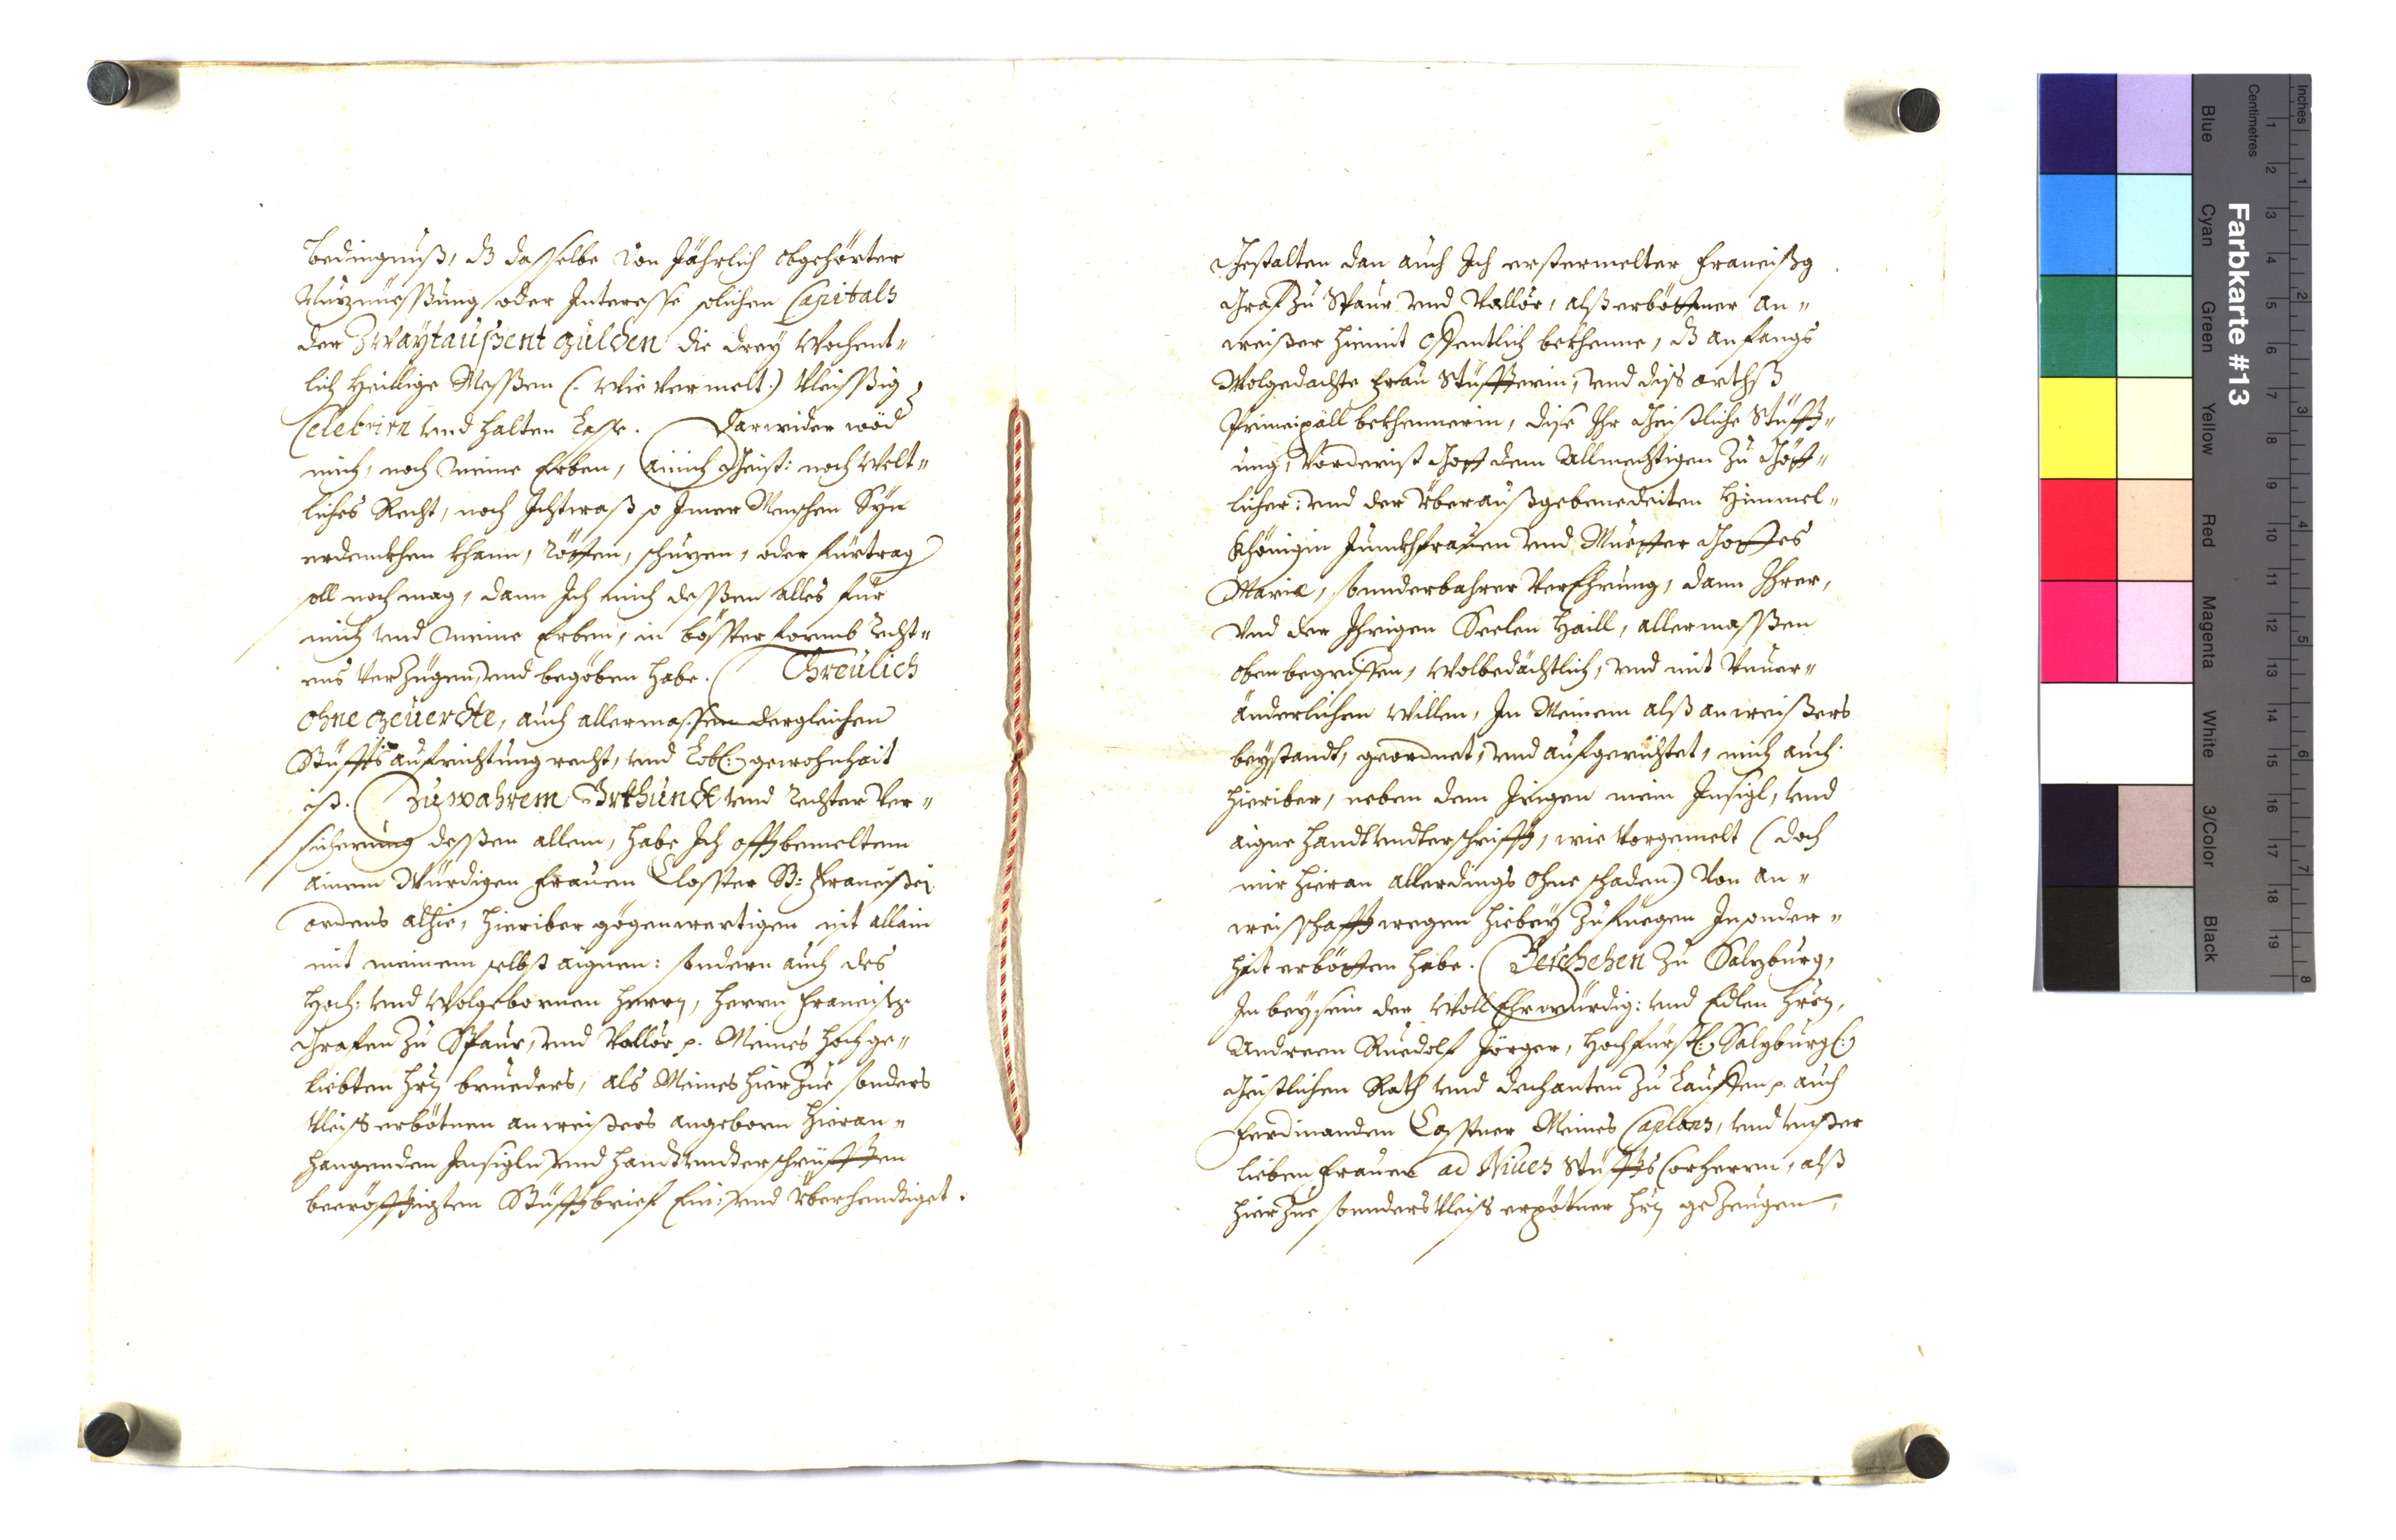 bedingnuß, dz dasselbe von Jährlich obgehörter
Nuzniessung oder Interesse solichen Capitals
der Zwaytaußent gulden die drey Wochent„
lich Heillige Messen (. wie vermelt.) vleissig
Celebrirn vnd halten lasse. Darwider wöd
mich, noch meine Erben, ainich Geist: noch Welt„
liches Recht, noch Ichtwaß so Jmer Menschen Syn
erdenckhen khann, rötten, schuzen, oder fürtrag
soll noch mag, dann Ich mich dessen alles für
mich vnd meine Erben, in bösster formb recht„
ens verzügen, vnd begöben habe. Threülich
ohne geüerdte, auch allermassen dergleichen
Stüffts aufrichtung recht, vnd Lobl: gewohnhait
ist. Zu wahrem Vrkhundt vnd rechter Ver„
sicherung dessen allem, habe Ich offtbemeltem
ainem Würdigen Frauen Closster St: Francissci
ordens alhie, hieriber gögenwertigen nit allain
mit meinem selbst aignen: sondern auch des
Hoch: vnd Wolgebornen Herrn, Herrn Francissz
Grafen zu Spaur, vnd Vallör p. Meines hochge„
liebten Hrn brueders, als Meines hierzue sonders
vleiss erbötnen anweißers angeborn hieran„
hangenden Insigln vnd handtvndterschrüfften
becröfftigten Stüfftbrief Ein: vnd Yberhendtiget.
Gestalten dan auch Ich erstermelter Francißg
Graf zu Spaur vnd Vallör, alß erböttner an„
weißer hiemit offentlich bekhenne, dz anfangs
Wolgedachte Frau Stüffterin, vnd diss orthß
Principäll bekhennerin, dise Ihr Geistliche Stüfft„
ung, Vorderist Gott dem Allmechtigen zu Gött„
licher: vnd der Yberaußgebenedeiten Himmel„
Khönigin Junckhfrauen vnd Muetter Gottes
Mariæ, sonderbahrer Verehrung, dann Ihrer,
Vnd der Ihrigen Seelen Haill, allermassen
oben begriffen, Wolbedächtlich, vnd mit Vnuer„
änderlichen Willen, In Meinem alß anweißers
beystandt, geordnet, vnd aufgerichtet, mich auch
hieriber, neben dem Irigen mein Insigl, vnd
aigne handtvndterschrifft, wie vorgemelt (doch
mir hieran allerdings ohne schaden) Von an„
weisschafft wegen hiebey zufüegen Insonder„
heit erbötten habe. Geschehen zu Salzburg,
In beysein der WollEhrwürdig: vnd Edlen Hrn,
Andreen Ruedolf Jörger, Hochfürstl: Salzburgl:
Geistlichen Rath vnd dechanten zu Lauffen p. auch
Ferdinanden Casstner Meines Caplans, vnd vnßer
lieben Frauen ad Niues Stüffts Corherrn, alß
hierzue sonders vleiss erpötner Hrn gezeugen,
Inches
Centimetres
1 2 3 4 5 6 7 8
1 2 3 4 5 6 7 8 9 10 11 12 13 14 15 16 17 18 19
Farbkarte #13
Blue
Cyan
Green
Yellow
Red
Magenta
White
3/Color
Black